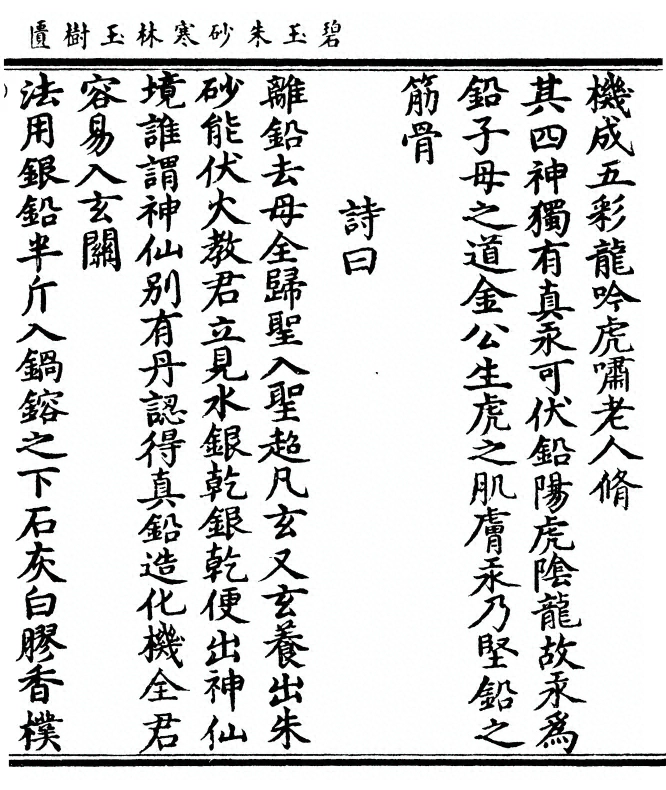 碧玉朱砂寒林玉樹匱
機成五彩龍吟虎嘯老人脩
其四神獨有真汞可伏鉛陽虎陰龍故汞爲
鉛子母之道金公生虎之肌膚汞乃堅鉛之
筋骨
詩曰
離鉛去母全歸聖入聖超凡玄又玄養出朱
砂能伏火教君立見水銀乾銀乾便出神仙
境誰謂神仙别有丹認得真鉛造化機全君
容易入玄關
法用銀鉛半斤入鍋鎔之下石灰白膠香樸